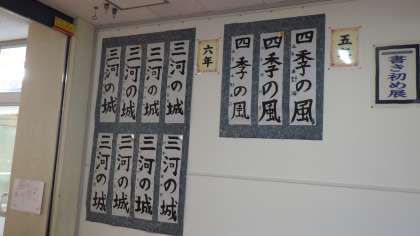 書き初め展
五
四季の風
四季の風
四季の風
六年
三河の城
三河の城
三河の城
三河の城
三河の城
三河の城
三河の城
三河の城